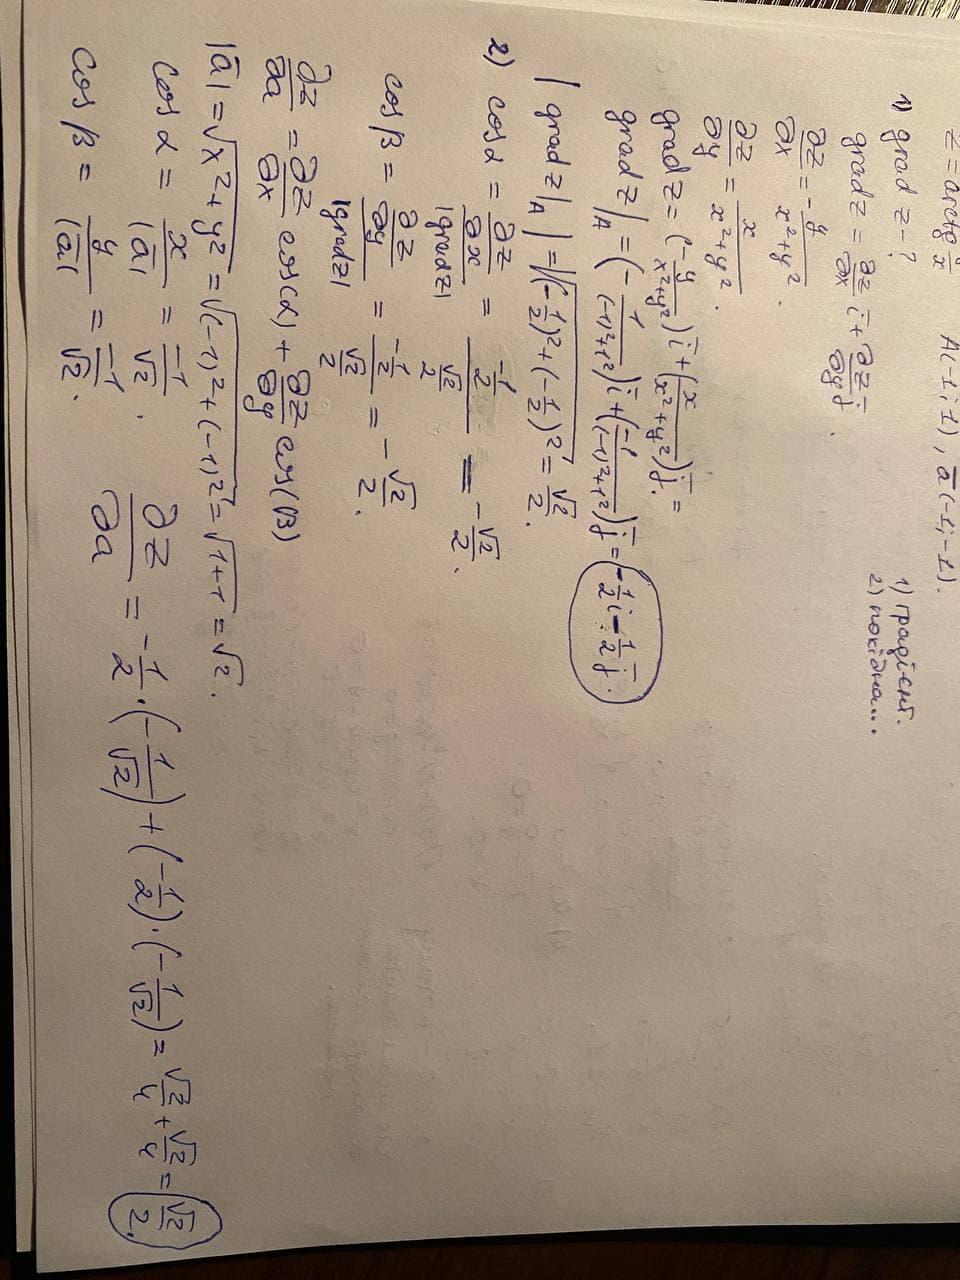 z = arctg y/x   A(-1; 1), a̅(-1; -1).
1) градієнт.
2) похідна...
1) grad z - ?
grad z = ∂z/∂x i̅ + ∂z/∂y j̅.
∂z/∂x = - y/(x²+y²).
∂z/∂y = x/(x²+y²).
grad z = (- y/(x²+y²)) i̅ + (x/(x²+y²)) j̅ =
grad z|_A = (- 1/((-1)²+1²)) i̅ + (-1/((-1)²+1²)) j̅ = -1/2 i̅ - 1/2 j̅.
|grad z|_A| = √((-1/2)² + (-1/2)²) = √2/2.
2) cos α = (∂z/∂x)/|grad z| = (-1/2)/(√2/2) = - √2/2.
cos β = (∂z/∂y)/|grad z| = (-1/2)/(√2/2) = - √2/2.
∂z/∂a = ∂z/∂x cos(α) + ∂z/∂y cos(β)
|a̅| = √(x² + y²) = √((-1)² + (-1)²) = √(1+1) = √2.
cos α = x/|a̅| = -1/√2.
cos β = y/|a̅| = -1/√2.
∂z/∂a = -1/2 · (-1/√2) + (-1/2) · (-1/√2) = √2/4 + √2/4 = √2/2.